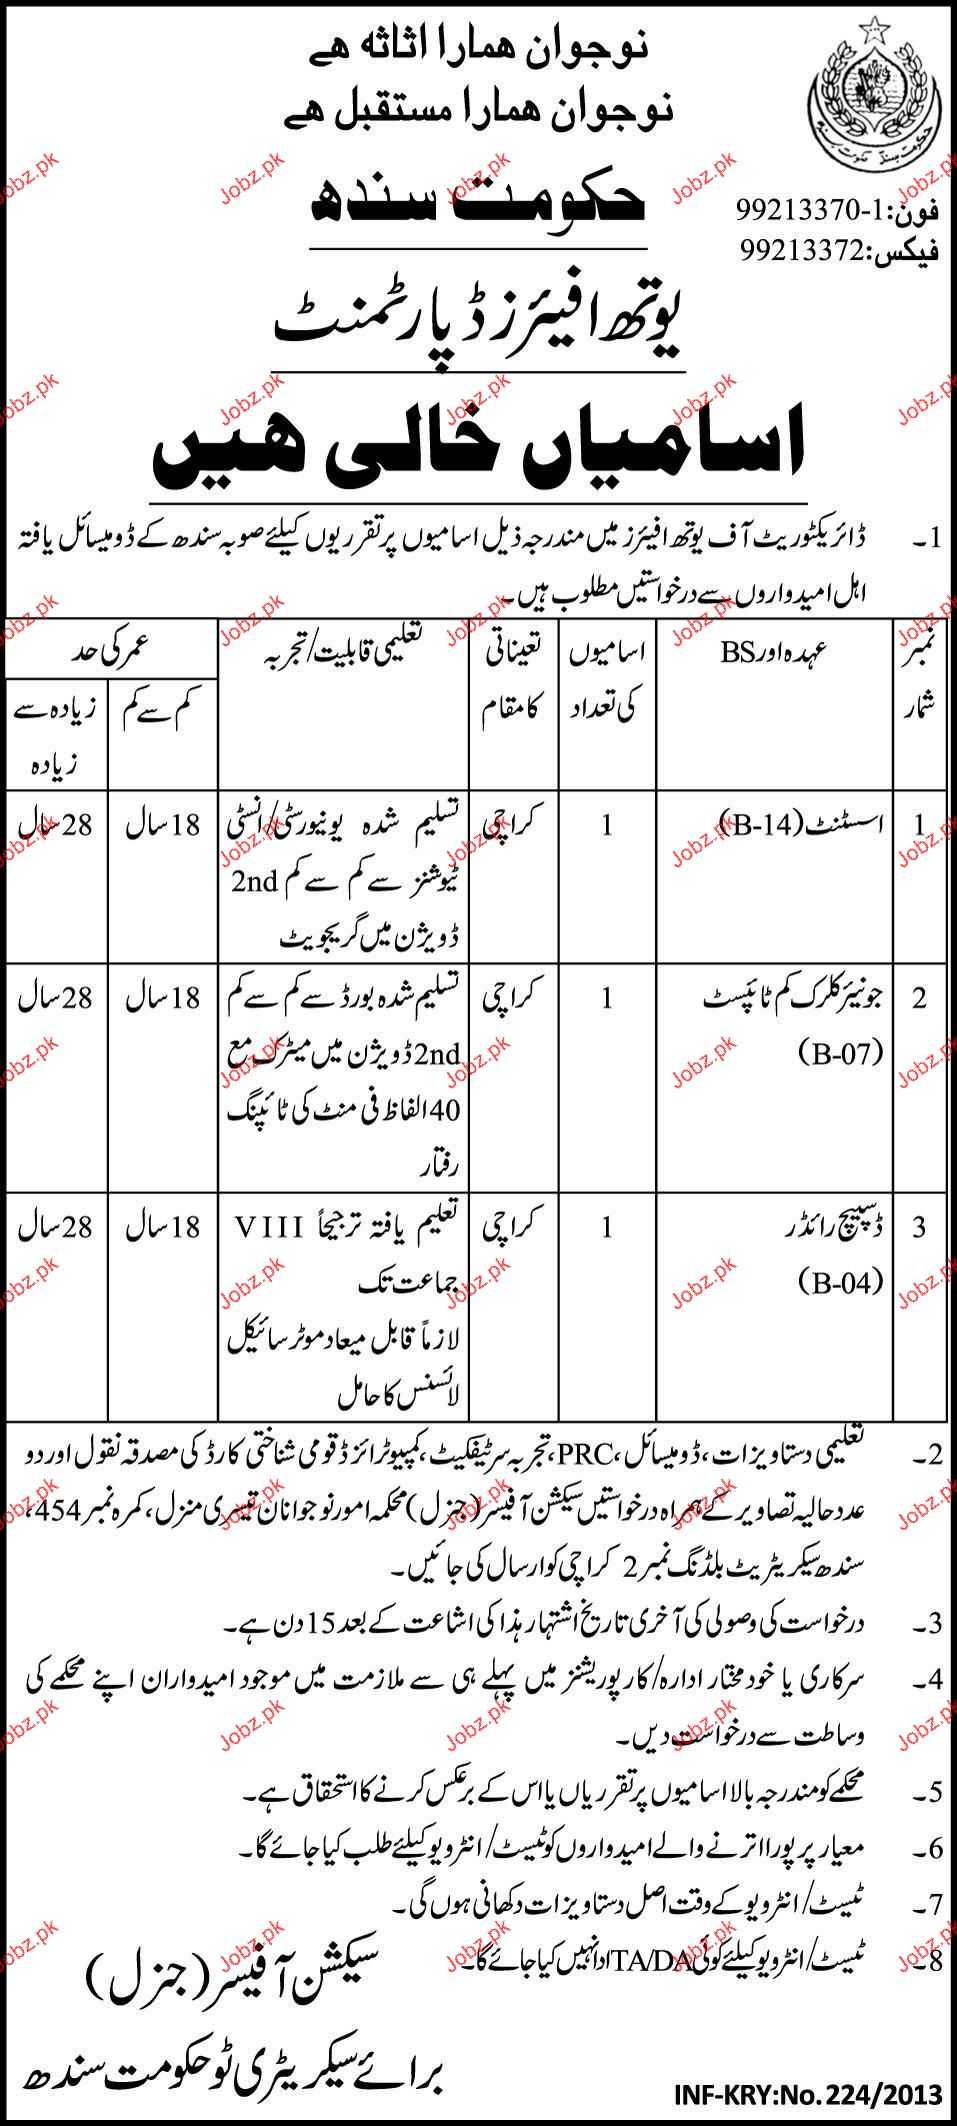 نوجوان ہمارا اثاثہ ہے
نوجوان ہمارا مستقبل ہے
حکومت سندھ
فون:99213370-1
فیکس:99213372
یوتھ افیئرز ڈپارٹمنٹ
اسامیاں خالی ہیں
1۔ ڈائریکٹوریٹ آف یوتھ افیئرز میں مندرجہ ذیل اسامیوں پر تقرریوں کیلئے صوبہ سندھ کے ڈومیسائل یافتہ
اہل امیدواروں سے درخواستیں مطلوب ہیں۔
نمبر شمار | عہدہ اور BS | اسامیوں کی تعداد | تعیناتی کا مقام | تعلیمی قابلیت/تجربہ | عمر کی حد
کم سے کم | زیادہ سے زیادہ
1 | اسسٹنٹ (B-14) | 1 | کراچی | تسلیم شدہ یونیورسٹی/انسٹی | 18 سال | 28 سال
ٹیوشنز سے کم سے کم 2nd
ڈویژن میں گریجویٹ
2 | جونیئر کلرک کم ٹائپسٹ | 1 | کراچی | تسلیم شدہ بورڈ سے کم سے کم | 18 سال | 28 سال
(B-07) | 2nd ڈویژن میں میٹرک مع
40 الفاظ فی منٹ کی ٹائپنگ
رفتار
3 | ڈسپیچ رائڈر | 1 | کراچی | تعلیم یافتہ ترجیحاً VIII | 18 سال | 28 سال
(B-04) | جماعت تک
لازماً قابل میعاد موٹر سائیکل
لائسنس کا حامل
2۔ تعلیمی دستاویزات، ڈومیسائل، PRC، تجربہ سرٹیفکیٹ، کمپیوٹرائزڈ قومی شناختی کارڈ کی مصدقہ نقول اور دو
عدد حالیہ تصاویر کے ہمراہ درخواستیں سیکشن آفیسر (جنرل) محکمہ امور نوجوانان تیسری منزل، کمرہ نمبر 454،
سندھ سیکریٹریٹ بلڈنگ نمبر 2 کراچی کو ارسال کی جائیں۔
3۔ درخواست کی وصولی کی آخری تاریخ اشتہار ہذا کی اشاعت کے بعد 15 دن ہے۔
4۔ سرکاری یا خود مختار ادارہ/کارپوریشنز میں پہلے ہی سے ملازمت میں موجود امیدواران اپنے محکمے کی
وساطت سے درخواست دیں۔
5۔ محکمے کو مندرجہ بالا اسامیوں پر تقرریاں یا اس کے برعکس کرنے کا استحقاق ہے۔
6۔ معیار پر پورا اترنے والے امیدواروں کو ٹیسٹ/انٹرویو کیلئے طلب کیا جائے گا۔
7۔ ٹیسٹ/انٹرویو کے وقت اصل دستاویزات دکھانی ہوں گی۔
8۔ ٹیسٹ/انٹرویو کیلئے کوئی TA/DA ادا نہیں کیا جائے گا۔
سیکشن آفیسر (جنرل)
برائے سیکریٹری ٹو حکومت سندھ
INF-KRY:No.224/2013
Jobz.pk